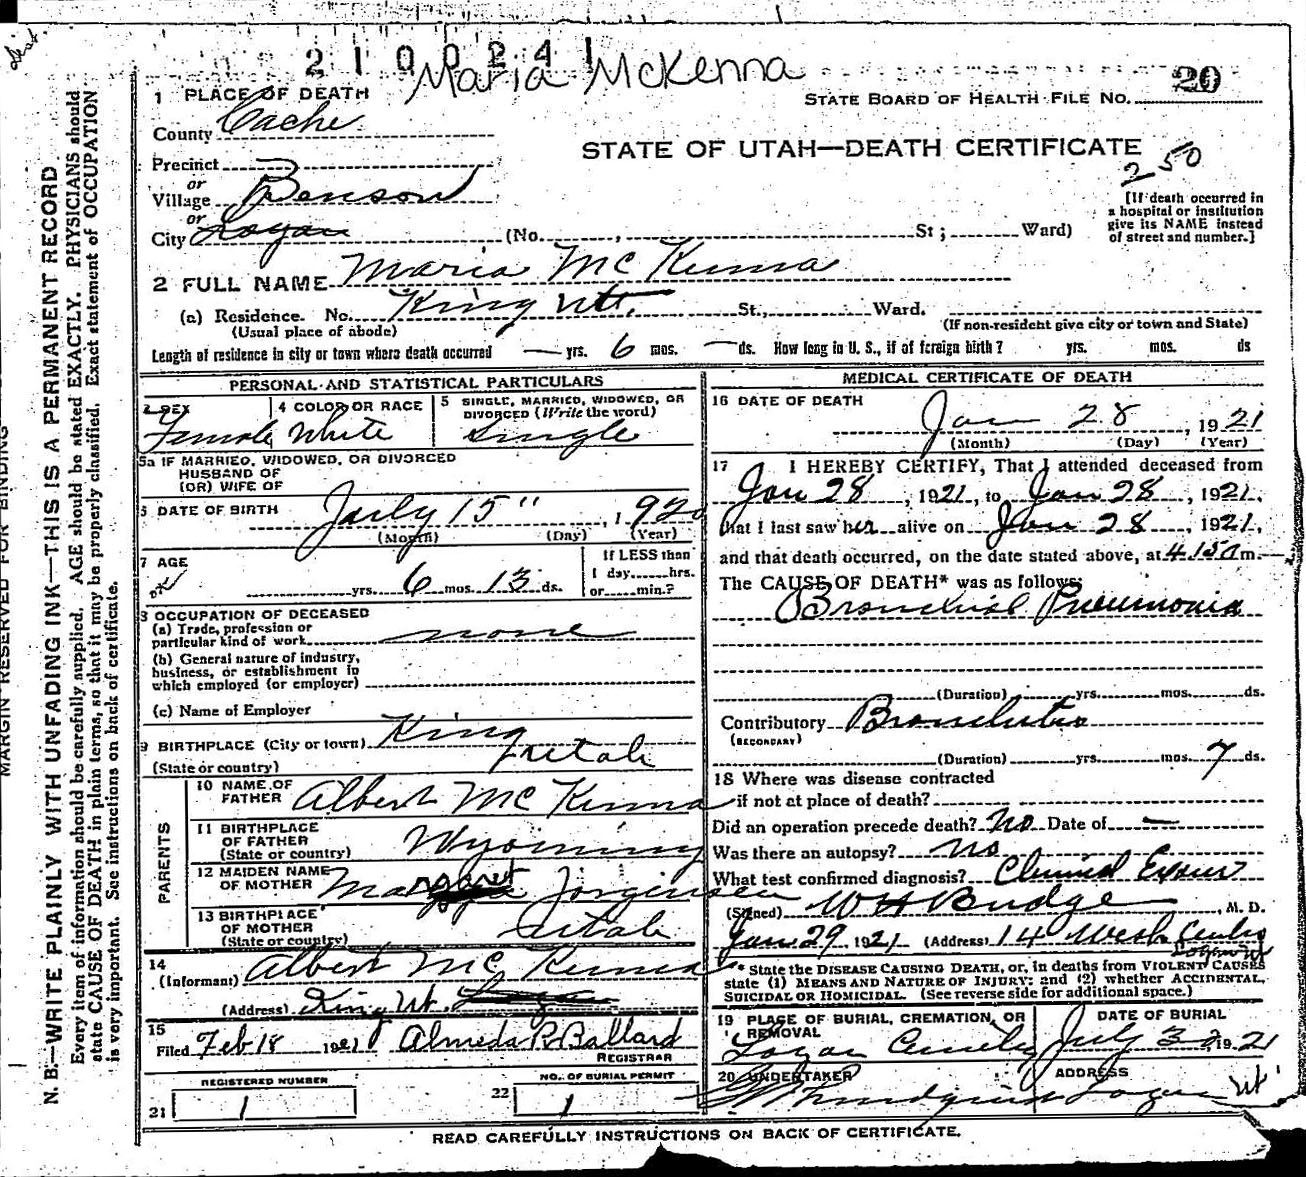 210024
Maria McKenna
1 PLACE OF DEATH
STATE BOARD OF HEALTH FILE NO. 20
County Cache
STATE OF UTAH—DEATH CERTIFICATE
250
Precinct
or
Village Benson
or
City Logan (No. , St; Ward)
[If death occurred in
a hospital or institution
give its NAME instead
of street and number.]
2 FULL NAME Maria McKenna
(a) Residence. No. King Ut. St., Ward.
(Usual place of abode) (If non-resident give city or town and State)
Length of residence in city or town where death occurred — yrs. 6 mos. — ds. How long in U. S., if of foreign birth? yrs. mos. ds
PERSONAL AND STATISTICAL PARTICULARS
3 SEX
Female
4 COLOR OR RACE
White
5 SINGLE, MARRIED, WIDOWED, OR
DIVORCED (Write the word)
Single
5a IF MARRIED, WIDOWED, OR DIVORCED
HUSBAND OF
(OR) WIFE OF
6 DATE OF BIRTH July 15" , 1920
(Month) (Day) (Year)
7 AGE
yrs. 6 mos. 13 ds.
If LESS than
1 day......hrs.
or......min.?
8 OCCUPATION OF DECEASED
(a) Trade, profession or
particular kind of work none
(b) General nature of industry,
business, or establishment in
which employed (or employer)
(c) Name of Employer
9 BIRTHPLACE (City or town) King
(State or country) Utah
PARENTS
10 NAME OF
FATHER Albert McKenna
11 BIRTHPLACE
OF FATHER
(State or country) Wyoming
12 MAIDEN NAME
OF MOTHER Margaret Jorgensen
13 BIRTHPLACE
OF MOTHER
(State or country) Utah
14
(Informant) Albert McKenna
(Address) King Ut. Logan
15
Filed Feb 18 1921 Almeda P. Ballard
REGISTRAR
REGISTERED NUMBER
21 1
NO. OF BURIAL PERMIT
22 1
MEDICAL CERTIFICATE OF DEATH
16 DATE OF DEATH
Jan 28 , 1921
(Month) (Day) (Year)
17 I HEREBY CERTIFY, That I attended deceased from
Jan 28 , 1921, to Jan 28 , 1921,
that I last saw her alive on Jan 28 , 1921,
and that death occurred, on the date stated above, at 4 15 a m.
The CAUSE OF DEATH* was as follows:
Bronchial Pneumonia
(Duration) yrs. mos. ds.
Contributory Bronchitis
(SECONDARY)
(Duration) yrs. mos. 7 ds.
18 Where was disease contracted
if not at place of death?
Did an operation precede death? No Date of —
Was there an autopsy? No
What test confirmed diagnosis? Clinical
(Signed) W H Budge , M. D.
Jan 29 1921 (Address) 14 West Center
Logan Ut
* State the DISEASE CAUSING DEATH, or, in deaths from VIOLENT CAUSES
state (1) MEANS AND NATURE OF INJURY; and (2) whether ACCIDENTAL,
SUICIDAL OR HOMICIDAL. (See reverse side for additional space.)
19 PLACE OF BURIAL, CREMATION, OR
REMOVAL
DATE OF BURIAL
Logan
1921
20 UNDERTAKER
ADDRESS
Logan Ut
READ CAREFULLY INSTRUCTIONS ON BACK OF CERTIFICATE.
MARGIN RESERVED FOR BINDING
N. B.—WRITE PLAINLY WITH UNFADING INK—THIS IS A PERMANENT RECORD
Every item of information should be carefully supplied. AGE should be stated EXACTLY. PHYSICIANS should
state CAUSE OF DEATH in plain terms, so that it may be properly classified. Exact statement of OCCUPATION
is very important. See instructions on back of certificate.